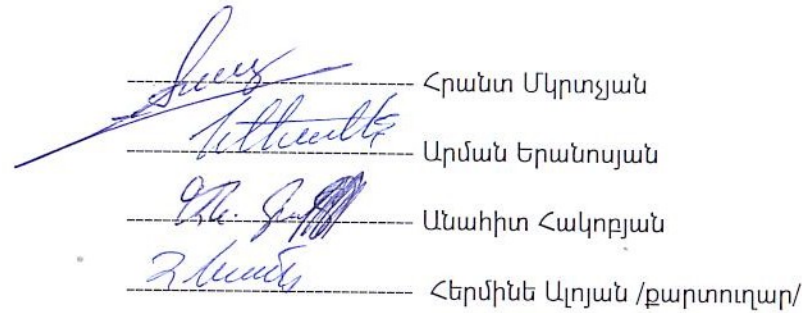 Հրանտ Մկրտչյան
Արման Երանոսյան
Անահիտ Հակոբյան
Հերմինե Ալոյան /քարտուղար/